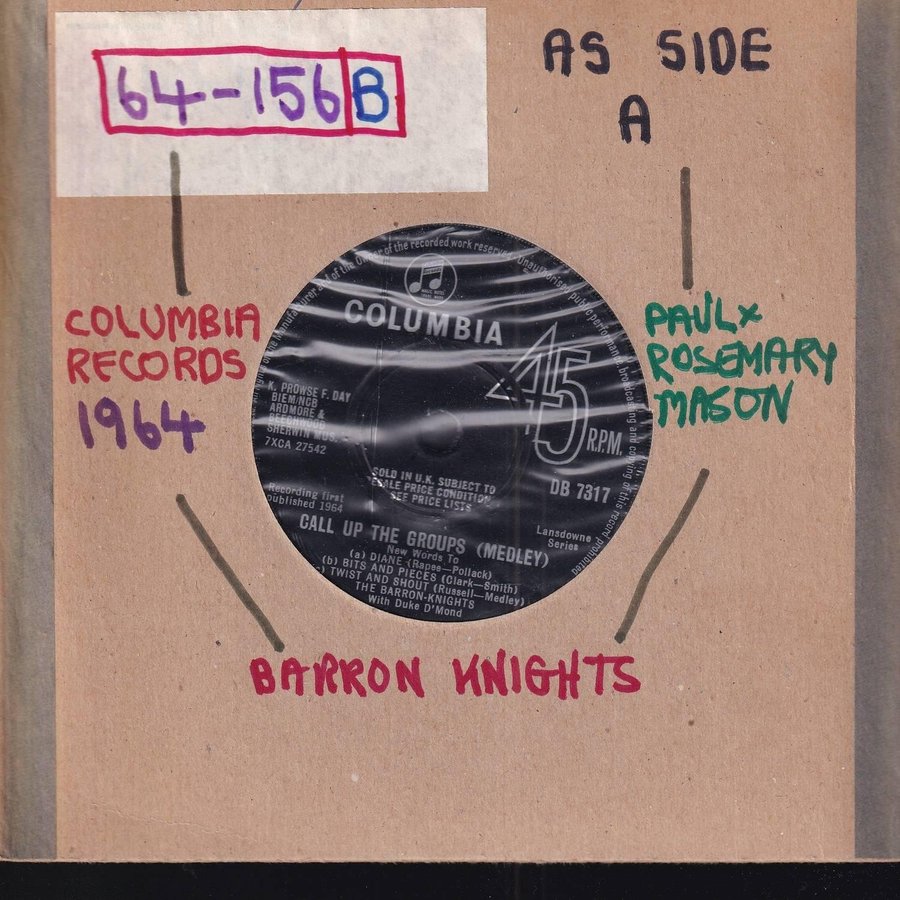 64-156 B
AS SIDE
A
COLUMBIA
RECORDS
1964
PAUL &
ROSEMARY
MASON
BARRON KNIGHTS
of the recorded work reserved. Unauthorised public performance, broadcasting and copying of this record prohibited
COLUMBIA
45
R.P.M.
K. PROWSE F. DAY
BIEM/NCB
ARDMORE &
BEECHWOOD
SHERWIN MUS.
7XCA 27542
SOLD IN U.K. SUBJECT TO
RESALE PRICE CONDITIONS
SEE PRICE LISTS
DB 7317
Recording first
published 1964
Lansdowne
Series
CALL UP THE GROUPS (MEDLEY)
New Words To
(a) DIANE (Rapee—Pollack)
(b) BITS AND PIECES (Clark—Smith)
(c) TWIST AND SHOUT (Russell—Medley)
THE BARRON-KNIGHTS
With Duke D'Mond